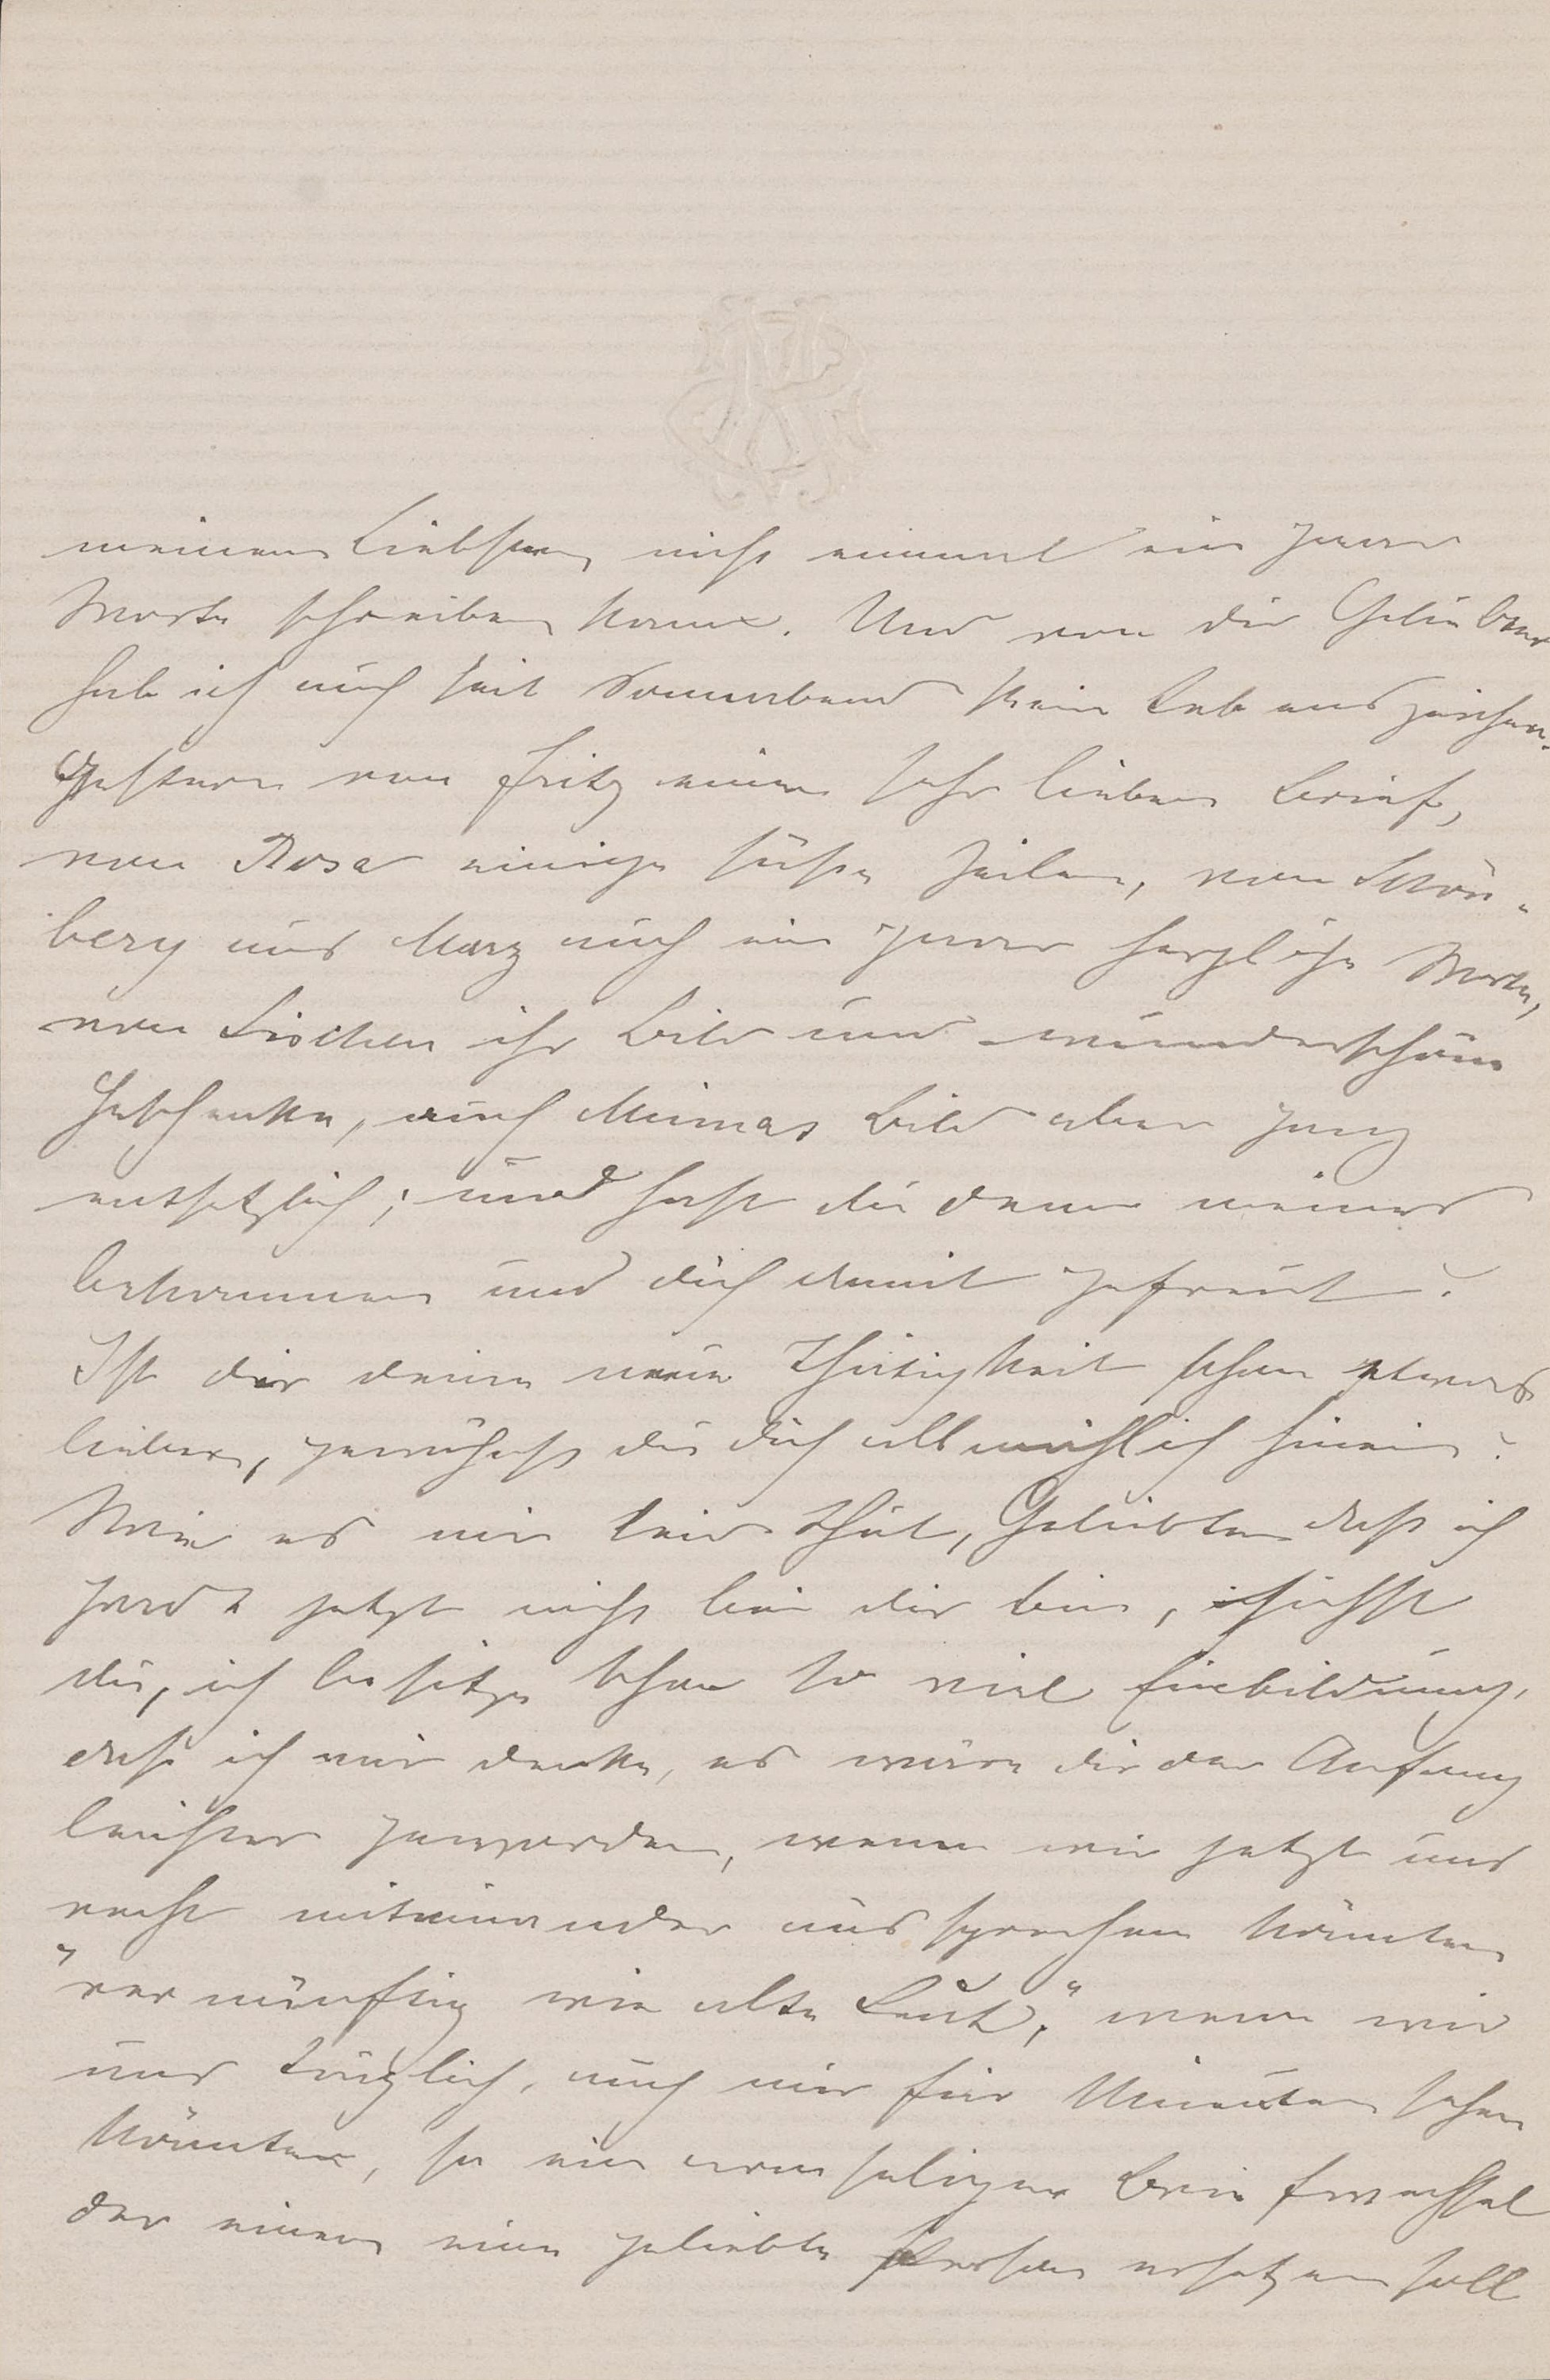 meinem Liebsten nicht einmal ein paar
Worte schreiben kann. Und von dir Geliebter
hab ich auch seit Sonnabend kein Lebenszeichen.
Gestern von Fritz einen sehr lieben Brief,
von Rosa einige süße Zeilen, von Schön-
berg und Marz auch ein paar herzliche Worte,
von Lischen ihr Bild und wunderschöne
Geschenke, auch Minnas Bild aber ganz
entsetzlich; und hast du denn meines
bekommen und dich damit gefreut?
Ist dir deine neue Thätigkeit schon etwas
lieber, gewöhnst du dich allmählich hinein?
Wie es mir leid thut, Geliebter daß ich
grad jetzt nicht bei dir bin, siehst
du, ich besitze schon so viel Einbildung,
daß ich mir denke, es wäre dir der Anfang
leichter geworden, wenn wir jetzt uns
recht miteinander aussprechen könnten
"vernünftig wie alte Leut," wenn wir
uns täglich, auch nur für Minuten sehen
könnten, so ein armseliger Briefwechsel
der einem eine geliebte Person ersetzen soll